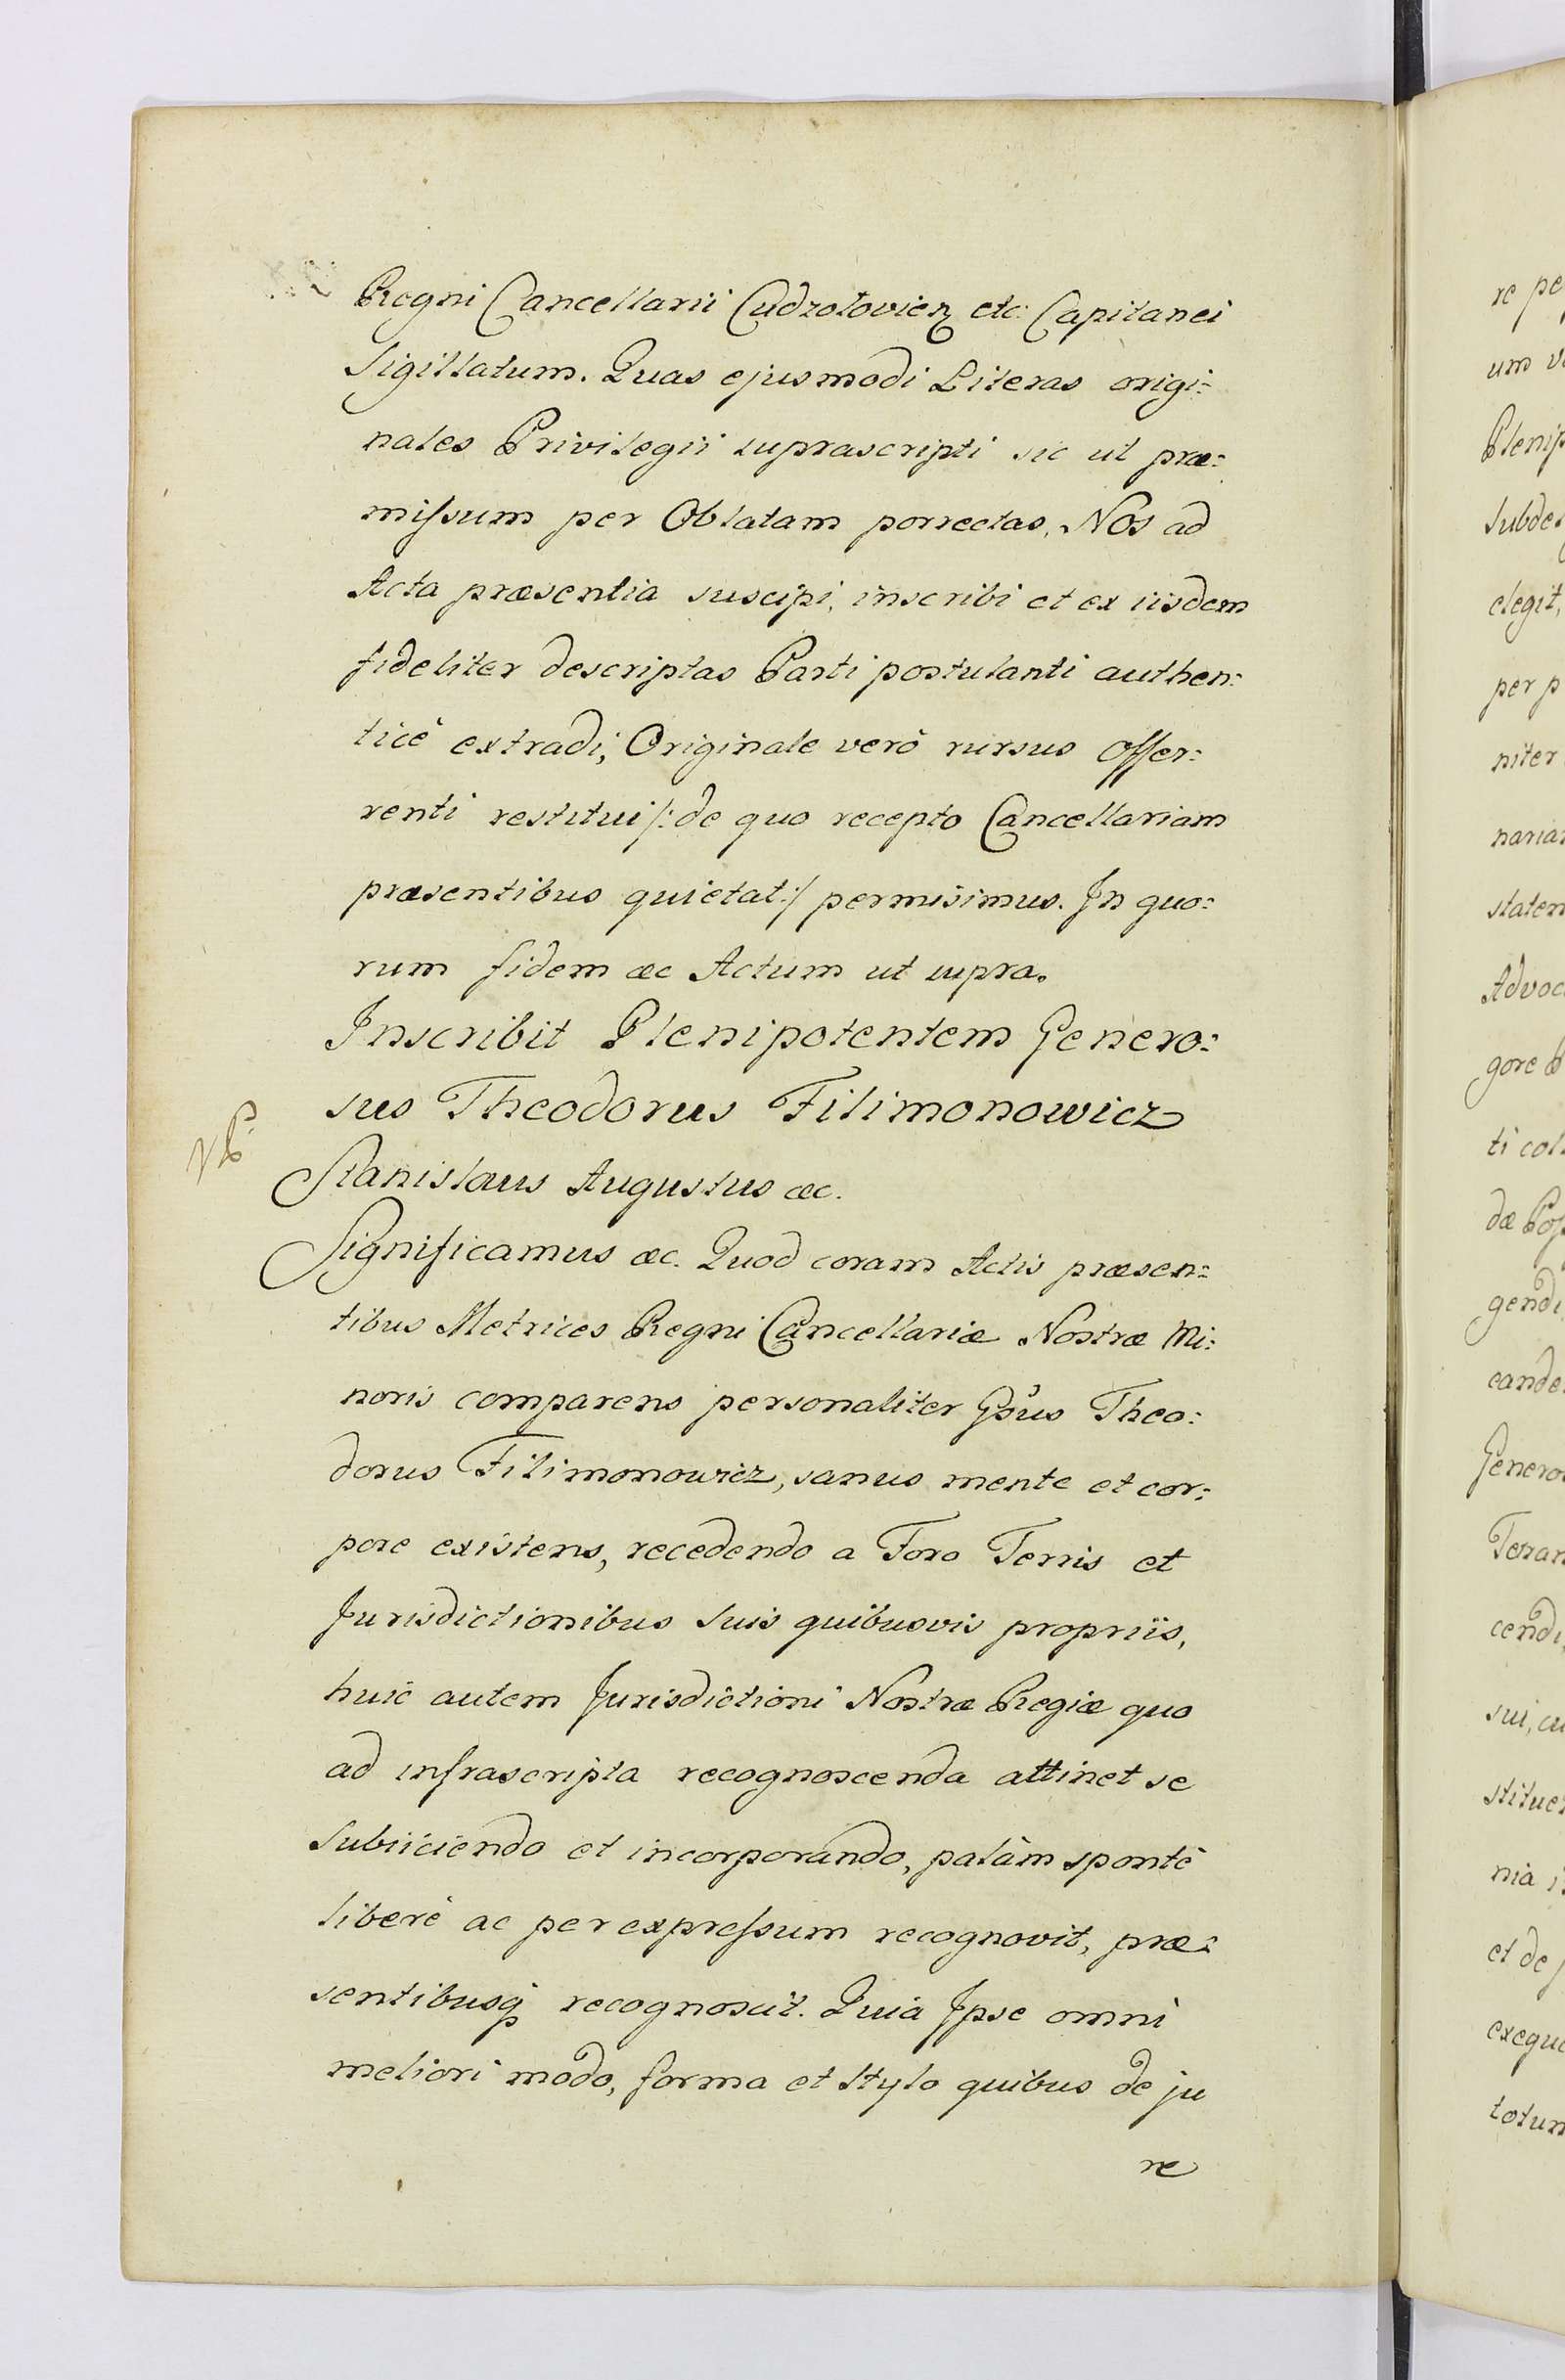 Regni Cancellarii Cudzołovien etc: Capitanei
Sigillatum. Quas ejusmodi Literas origi:
nales Privilegii suprascripti sic ut præ:
missum per Oblatam porrectas, Nos ad
Acta præsentia suscipi, inscribi et ex iisdem
fideliter descriptas Parti postulanti authen:
ticè extradi, Originale verò rursus Offer:
renti restitui /: de quo recepto Cancellariam
præsentibus quietat :/ permisimus. In quo:
rum fidem &c Actum ut supra.
Inscribit Plenipotentem Genero:
sus Theodorus Filimonowicz
Stanislaus Augustus &c.
Significamus &c. Quod coram Actis præsen:
tibus Metrices Regni Cancellariæ Nostræ Mi:
noris comparens personaliter Gsus Theo:
dorus Filimonowicz, sanus mente et cor:
pore existens, recedendo a Foro Terris et
Jurisdictionibus suis quibusvis propriis,
huic autem Jurisdictioni Nostræ Regiæ quo
ad infrascripta recognoscenda attinet se
subiiciendo et incorporando, palàm spontè
liberè ac per expressum recognovit, præ:
sentibusq recognoscit. Quia Ipse omni
meliori modo, forma et stylo quibus de ju
re
re pe
um v
Plenip
subde
elegit,
per p
niter
naria
staten
Advoc
gore
ti col
dæ
gendi
cande
Genero
cendi
sui, cu
stitue
nia i
et de
exequ
totum